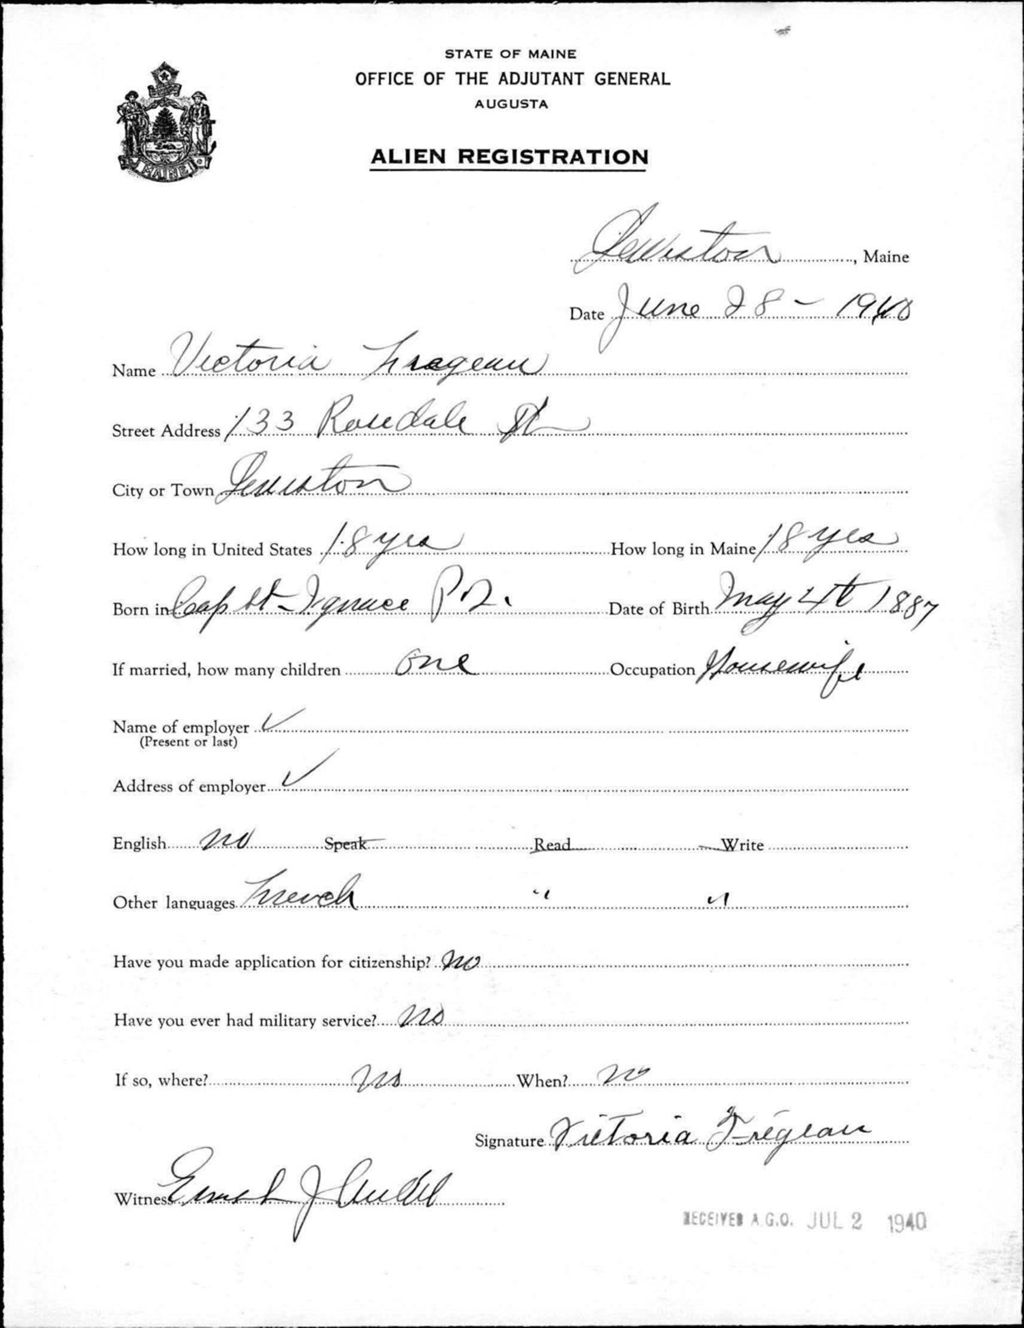 STATE OF MAINE
OFFICE OF THE ADJUTANT GENERAL
AUGUSTA
MAINE
ALIEN REGISTRATION
Lewiston, Maine
Date June 28 - 1940
Name Victoria Fregeau
Street Address 133 Rosedale St
City or Town Lewiston
How long in United States 18 yrs How long in Maine 18 yrs
Born in Cap St-Ignace P.Q. Date of Birth May 4th 1887
If married, how many children One Occupation Housewife
Name of employer ✓
(Present or last)
Address of employer ✓
English no Speak Read Write
Other languages French " "
Have you made application for citizenship? No
Have you ever had military service? No
If so, where? No When? No
Signature Victoria Frégeau
Witness Ernest J
RECEIVED A.G.O. JUL 2 1940